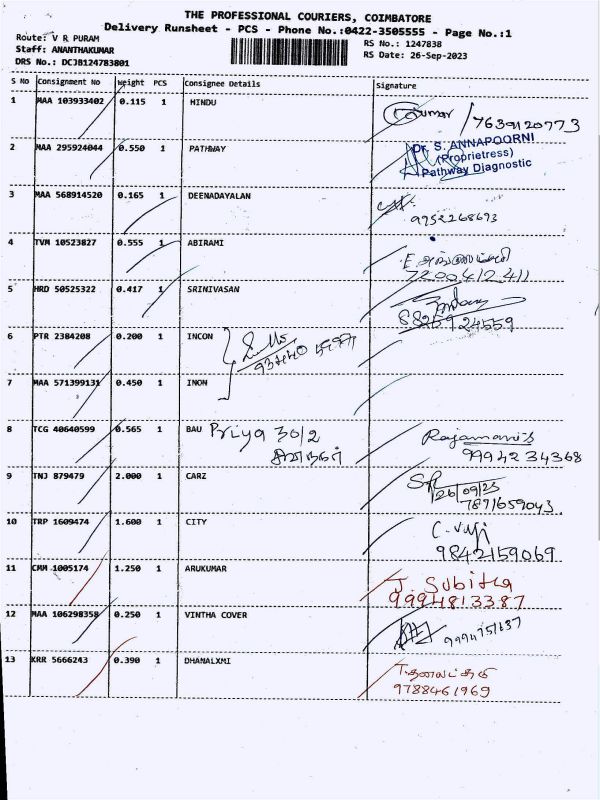 THE PROFESSIONAL COURIERS, COIMBATORE
Delivery Runsheet - PCS - Phone No.:0422-3505555 - Page No.:1
Route: V R PURAM
RS No.: 1247838
Staff: ANANTHAKUMAR
RS Date: 26-Sep-2023
DRS No.: DCJB124783801
S No Consignment No Weight PCS Consignee Details Signature
1 MAA 103933402 0.115 1 HINDU
kumar / 7639120773
2 MAA 295924044 0.550 1 PATHWAY
Dr. S. ANNAPOORNI
(Proprietress)
Pathway Diagnostic
3 MAA 568914520 0.165 1 DEENADAYALAN
9952268693
4 TVM 10523827 0.555 1 ABIRAMI
7200412411
5 HRD 50525322 0.417 1 SRINIVASAN
8825924559
6 PTR 2384208 0.200 1 INCON
7 MAA 571399131 0.450 1 INON
8 TCG 40640599 0.565 1 BAU Priya 30/2
Rajamani
9994234368
9 TNJ 879479 2.000 1 CARZ
26/09/23
7871659043
10 TRP 1609474 1.600 1 CITY
C. Viji
9842159069
11 CMM 1005174 1.250 1 ARUKUMAR
J. Subitha
9994813387
12 MAA 106298358 0.250 1 VINTHA COVER
9994751637
13 KRR 5666243 0.390 1 DHANALXMI
9788461969